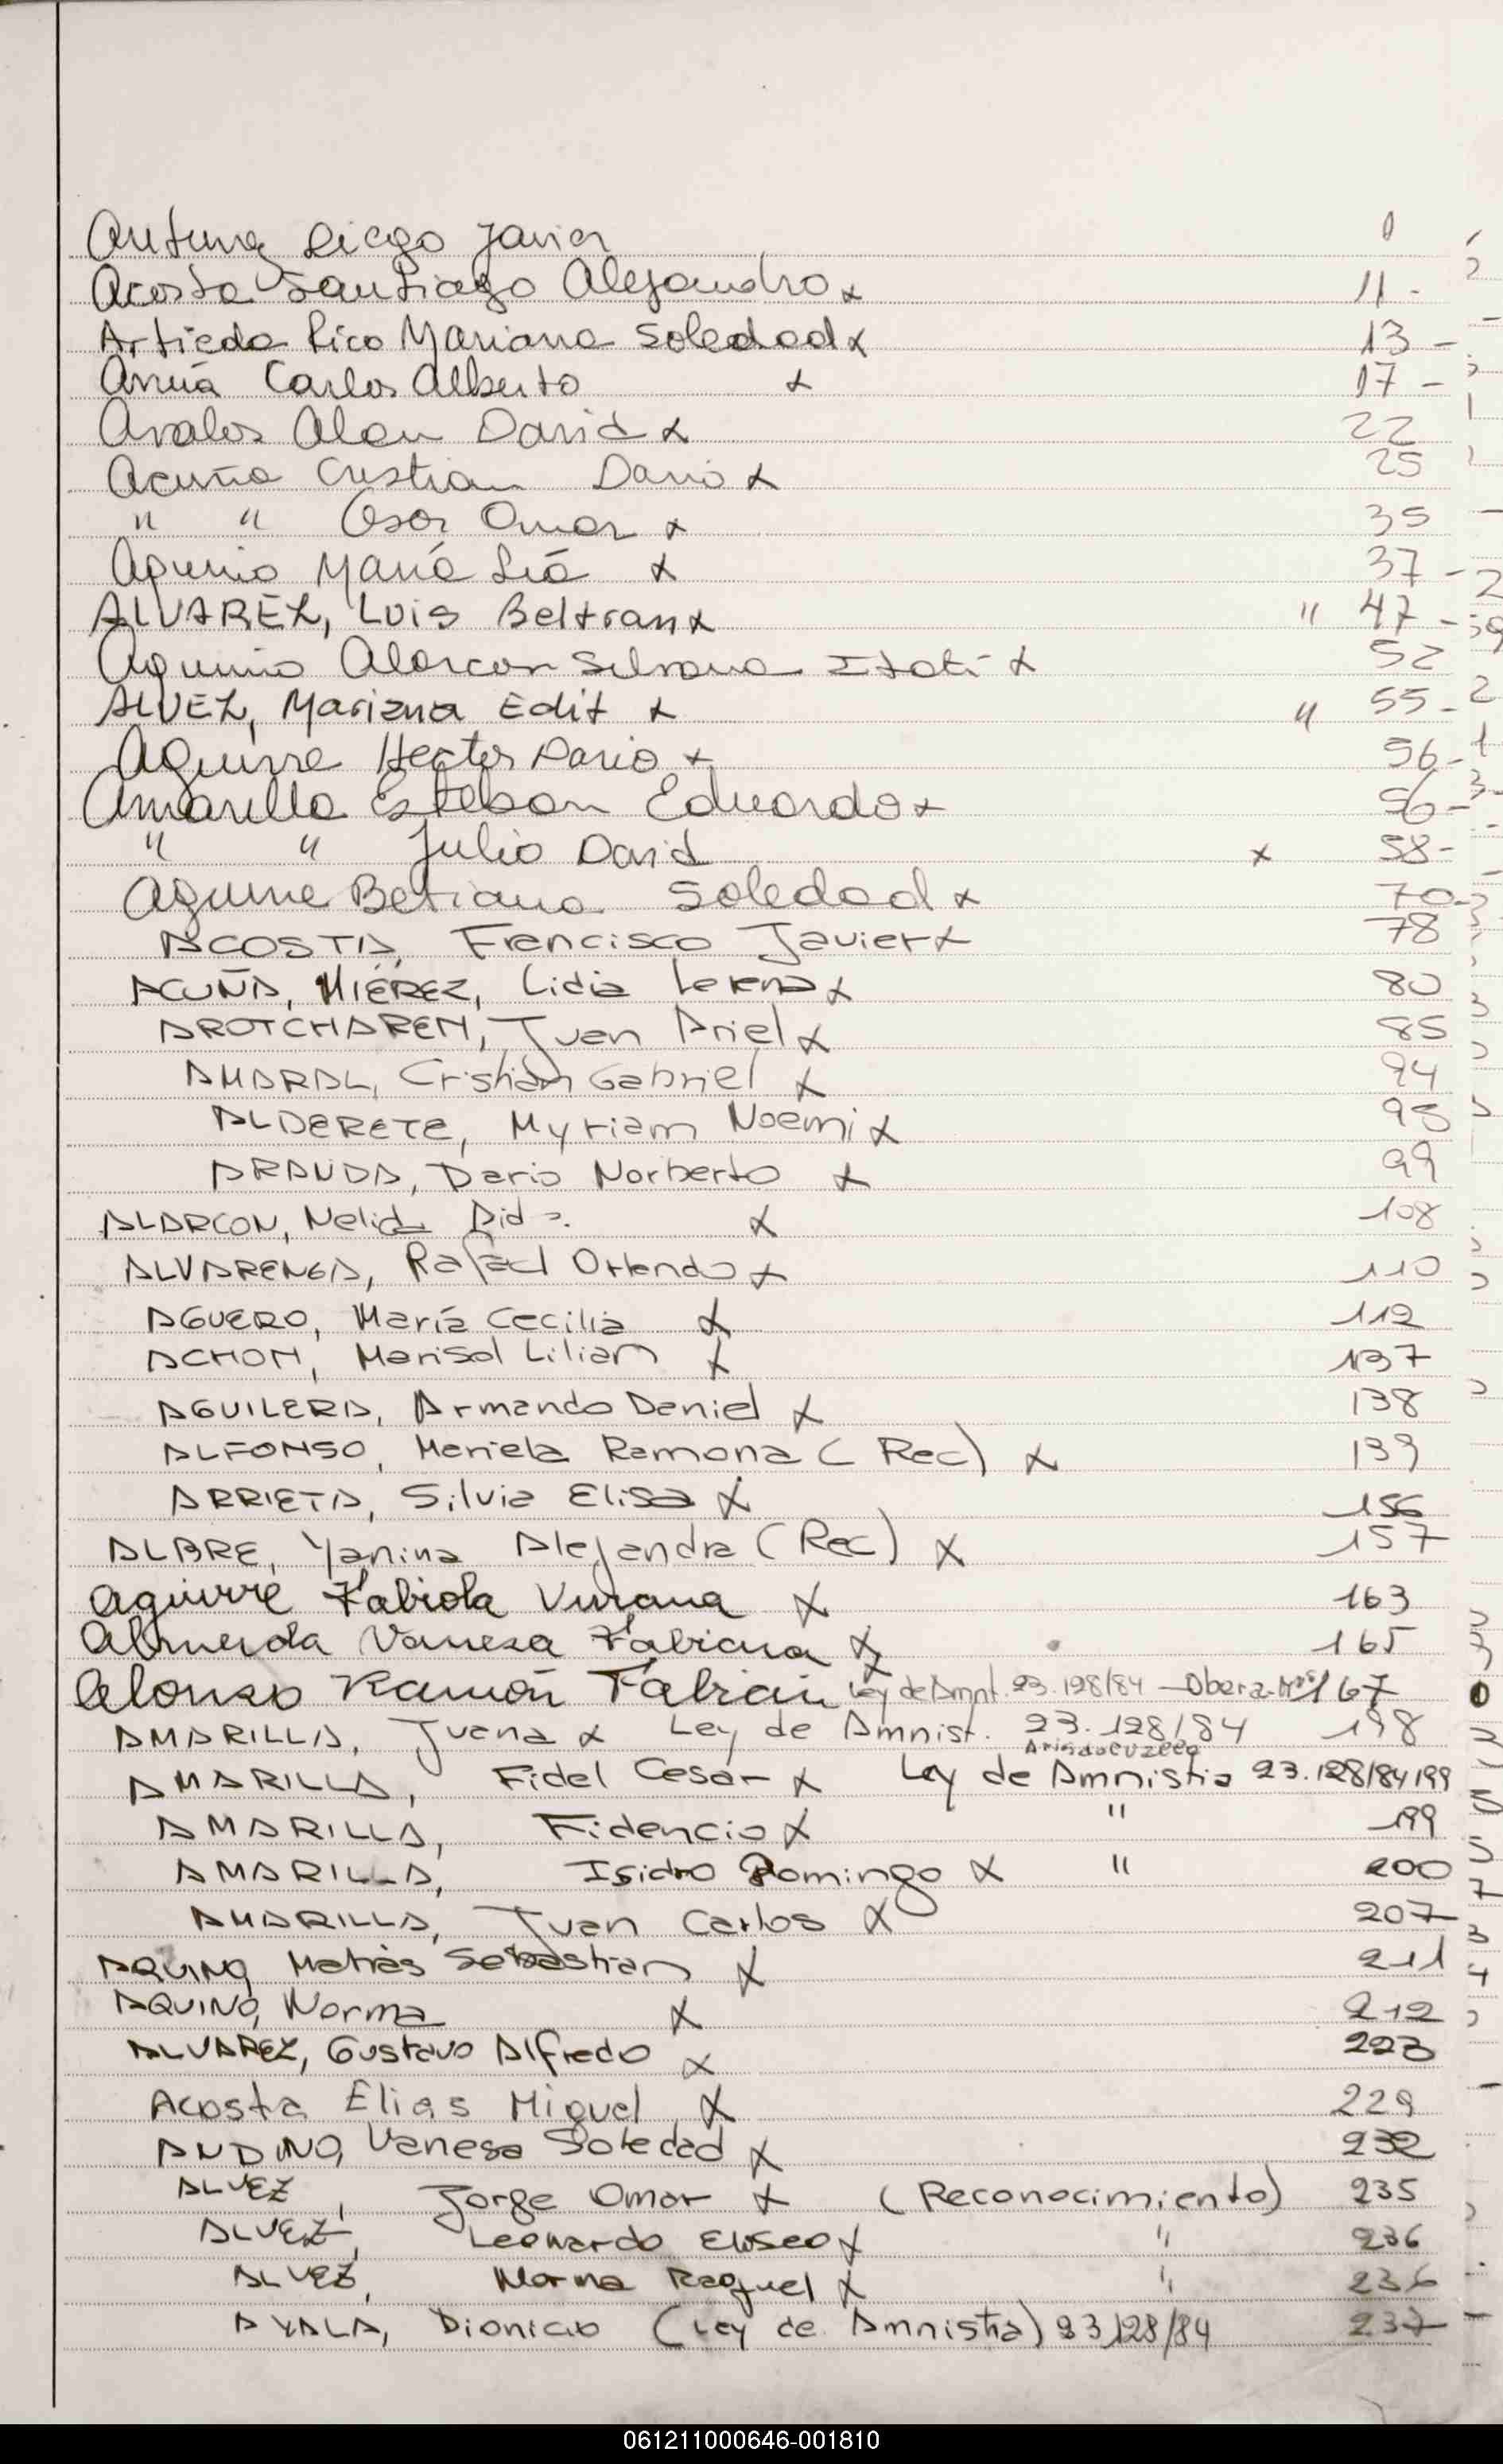 Antunez Diego Javier
Acosta Santiago Alejandro x 11 -
Artieda Rico Mariana Soledad x 13 -
Carlos Alberto x 17 -
Avalos Alan David x 22
Acuña Cristian Dario x 25
" " Cesar Omar x 35
Aquino María x 37 -
ALVAREZ, Luis Beltran x " 47 -
Aquino Alarcon Silvana Itatí x 52
ALVEZ, Mariana Edit x " 55 -
Aguirre Hector Dario x 56 -
Amarilla Esteban Eduardo x 56 -
" " Julio David x 58 -
Aguirre Betiana Soledad x 70 -
ACOSTA, Francisco Javier x 78
ACUÑA, MIÉREZ, Lidia Lorena x 80
AROTCHAREN, Juan Ariel x 85
AMARAL, Cristian Gabriel x 94
ALDERETE, Myriam Noemi x 95
ARANDA, Dario Norberto x 99
ALARCON, Nelida Aida. x 108
ALVARENGA, Rafael Orlando x 110
AGUERO, María Cecilia x 112
ACHON, Marisol Liliam x 137
AGUILERA, Armando Daniel x 138
ALFONSO, Mariela Ramona (Rec) x 139
ARRIETA, Silvia Elisa x 156
ALBRE, Yanina Alejandra (Rec) x 157
Aguirre Fabiola Viviana x 163
Almeida Vanesa Fabiana x 165
Alonso Ramón Fabián Ley de Amnt. 23.198/84 - Obera 167
AMARILLA, Juana x Ley de Amnist. 23.128/84 198
AMARILLA, Fidel Cesar x Ley de Amnistia 23.128/84 199
AMARILLA, Fidencio x " 199
AMARILLA, Isidro Domingo x " 200
AMARILLA, Juan Carlos x 207
AQUINO, Matias Sebastian x 211
AQUINO, Norma x 212
ALVAREZ, Gustavo Alfredo x 223
Acosta Elias Miguel x 229
ANDINO, Vanesa Soledad x 232
ALVEZ, Jorge Omar x (Reconocimiento) 235
ALVEZ, Leonardo Eliseo x " 236
ALVEZ, Norma Raquel x " 236
AYALA, Dionicio (Ley de Amnistia) 23128/84 237
061211000646-001810